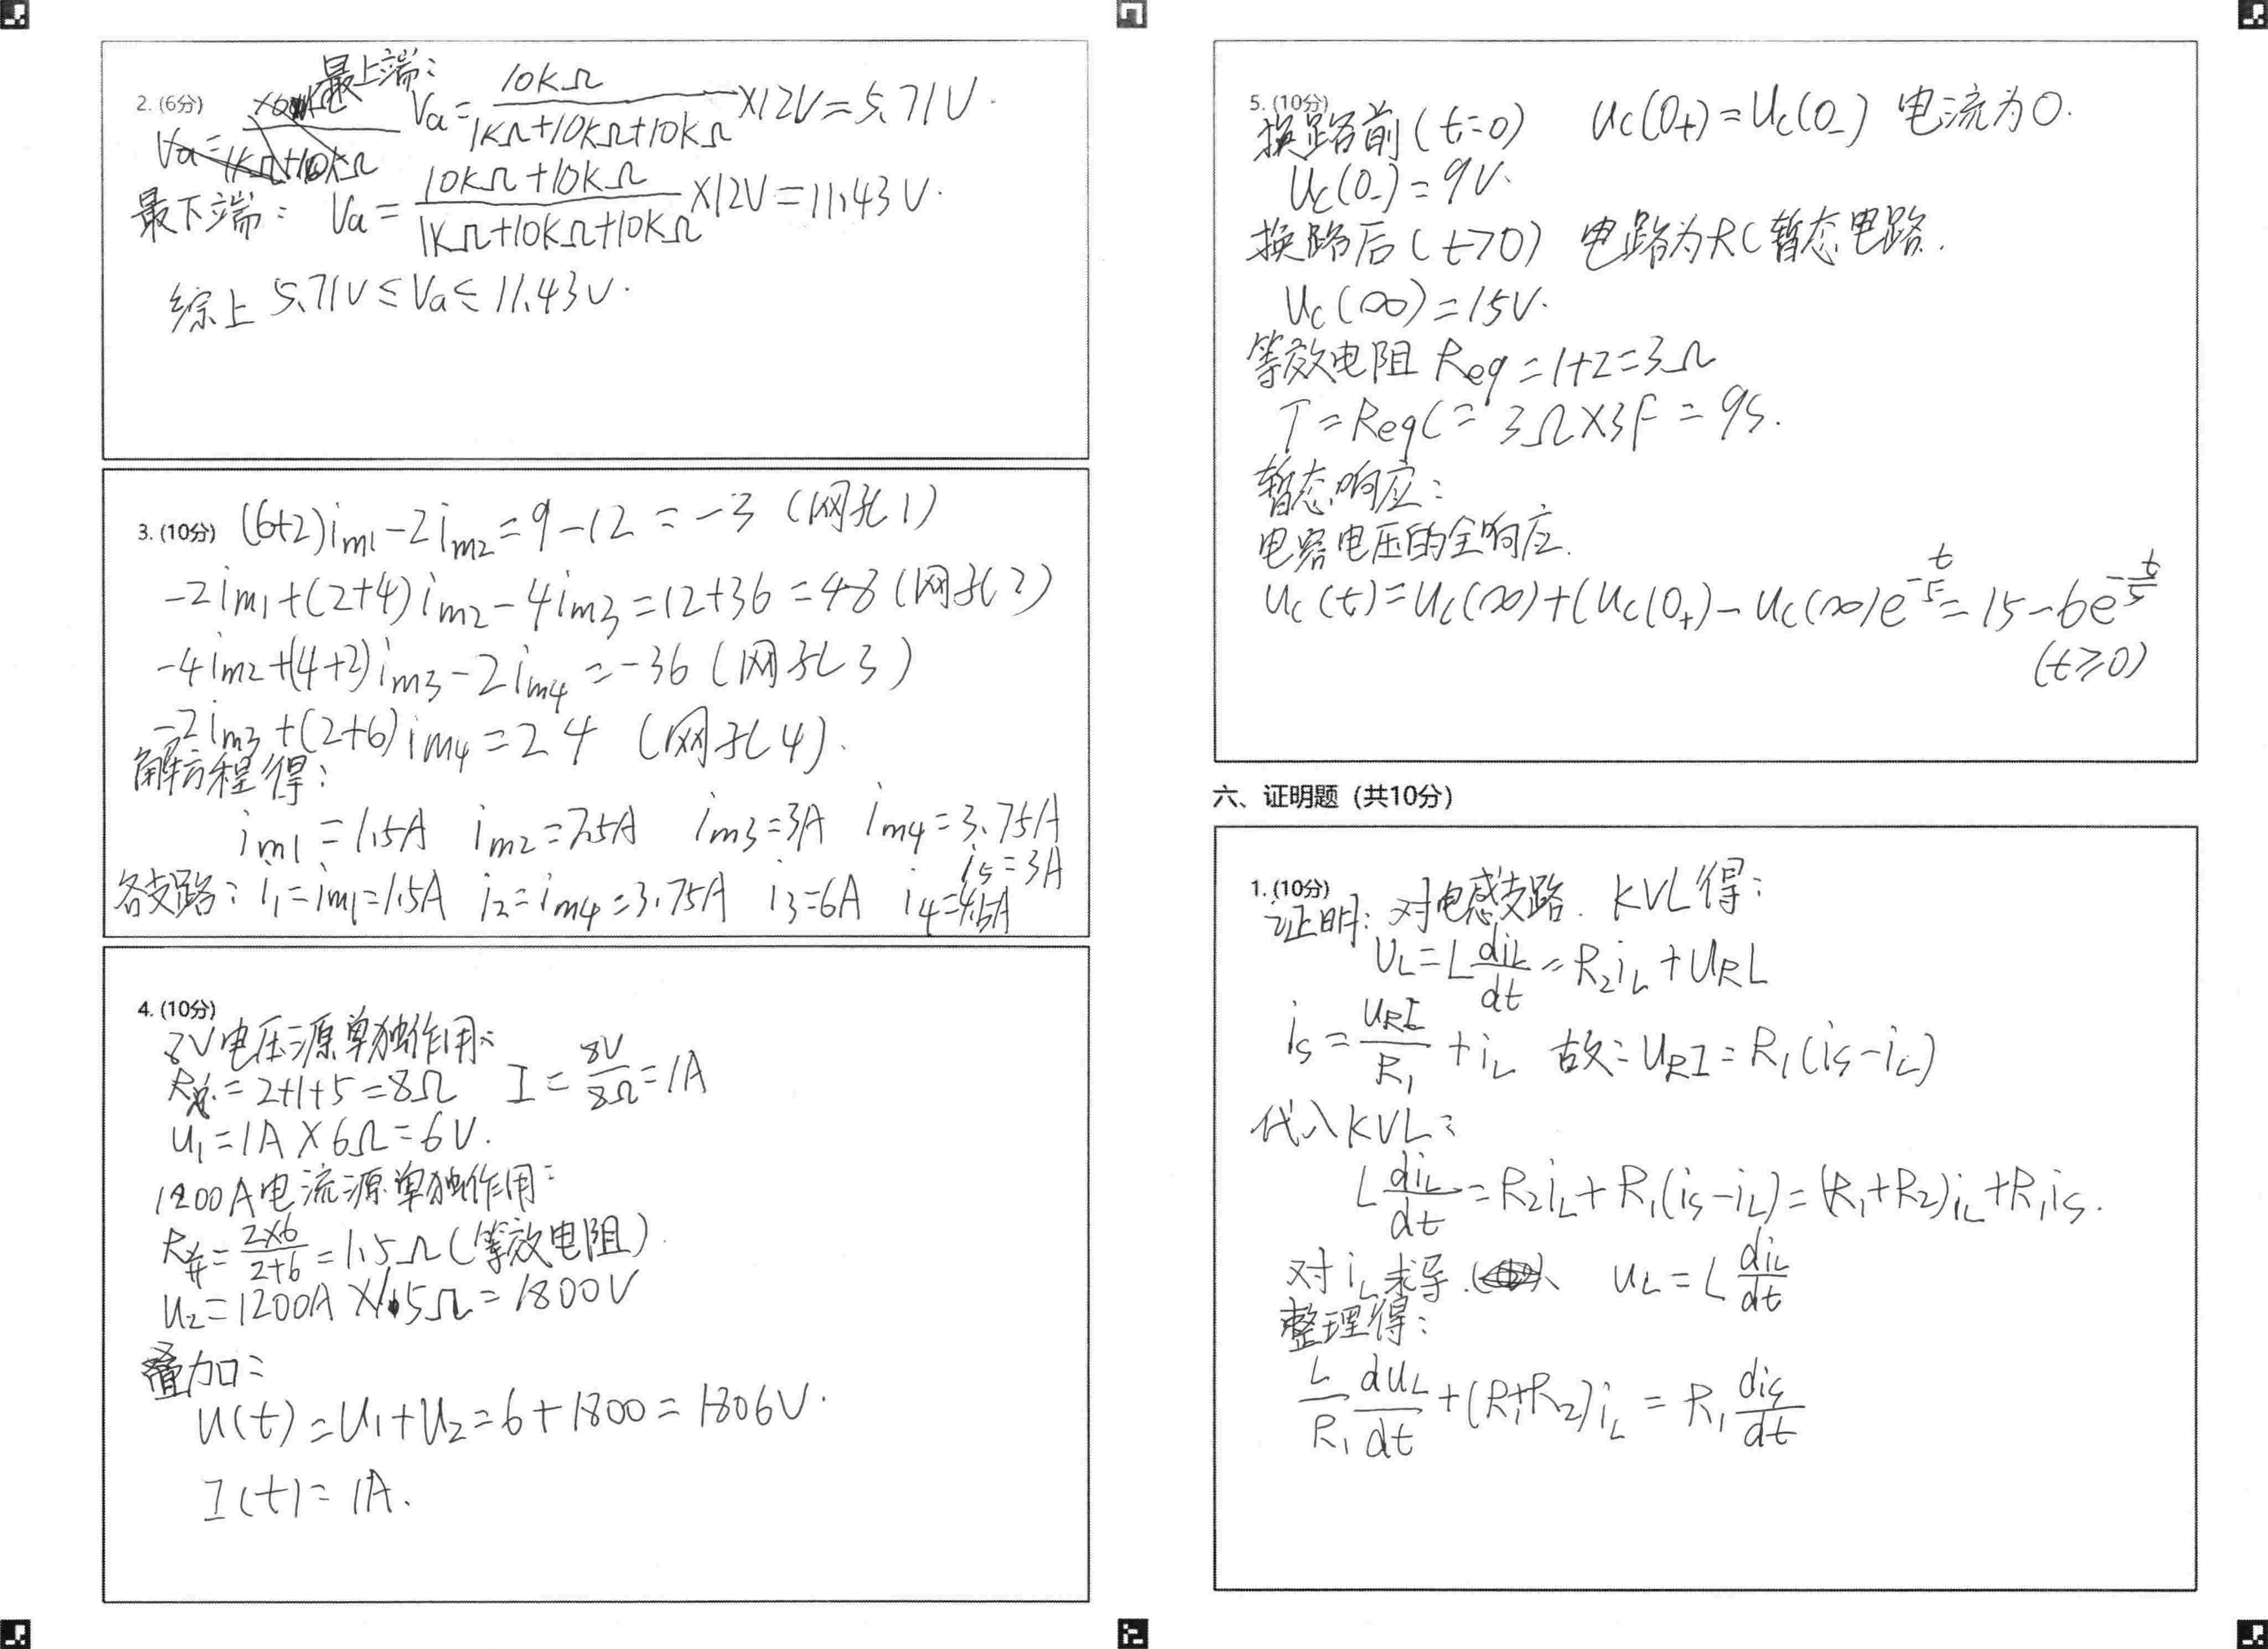 2. (6分)
最上端:
Va = 10KΩ / (1KΩ+10KΩ+10KΩ) ×12V = 5.71V.
最下端: Va = (10KΩ+10KΩ) / (1KΩ+10KΩ+10KΩ) ×12V = 11.43V.
综上 5.71V ≤ Va ≤ 11.43V.
3. (10分) (6+2)im1 - 2im2 = 9-12 = -3 (网孔1)
-2im1 + (2+4)im2 - 4im3 = 12+36 = 48 (网孔2)
-4im2 + (4+2)im3 - 2im4 = -36 (网孔3)
-2im3 + (2+6)im4 = 24 (网孔4).
解方程得:
im1 = 1.5A im2 = 7.5A im3 = 3A im4 = 3.75A
各支路: i1 = im1 = 1.5A i2 = im4 = 3.75A i3 = 6A i4 = 4.5A i5 = 3A
4. (10分)
8V电压源单独作用:
R总 = 2+1+5 = 8Ω I = 8V / 8Ω = 1A
u1 = 1A × 6Ω = 6V.
1200A电流源单独作用:
R并 = 2×6 / 2+6 = 1.5Ω (等效电阻)
u2 = 1200A × 1.5Ω = 1800V
叠加:
u(t) = u1 + u2 = 6 + 1800 = 1806V.
I(t) = 1A.
5. (10分)
换路前 (t=0) uc(0+) = uc(0-) 电流为0.
uc(0-) = 9V.
换路后 (t>0) 电路为RC暂态电路.
uc(∞) = 15V.
等效电阻 Req = 1+2 = 3Ω
T = ReqC = 3Ω×3F = 9s.
暂态响应:
电容电压的全响应.
uc(t) = uc(∞) + (uc(0+) - uc(∞)e^(-t/5) = 15 - 6e^(-t/5)
(t≥0)
六、证明题 (共10分)
1. (10分)
证明: 对电感支路. KVL得:
UL = L diL/dt = R2iL + URL
is = URI/R1 + iL 故: URI = R1(is-iL)
代入KVL:
L diL/dt = R2iL + R1(is-iL) = (R1+R2)iL + R1is.
对iL求导. uL = L diL/dt
整理得:
L/R1 duL/dt + (R1+R2)iL = R1 dis/dt